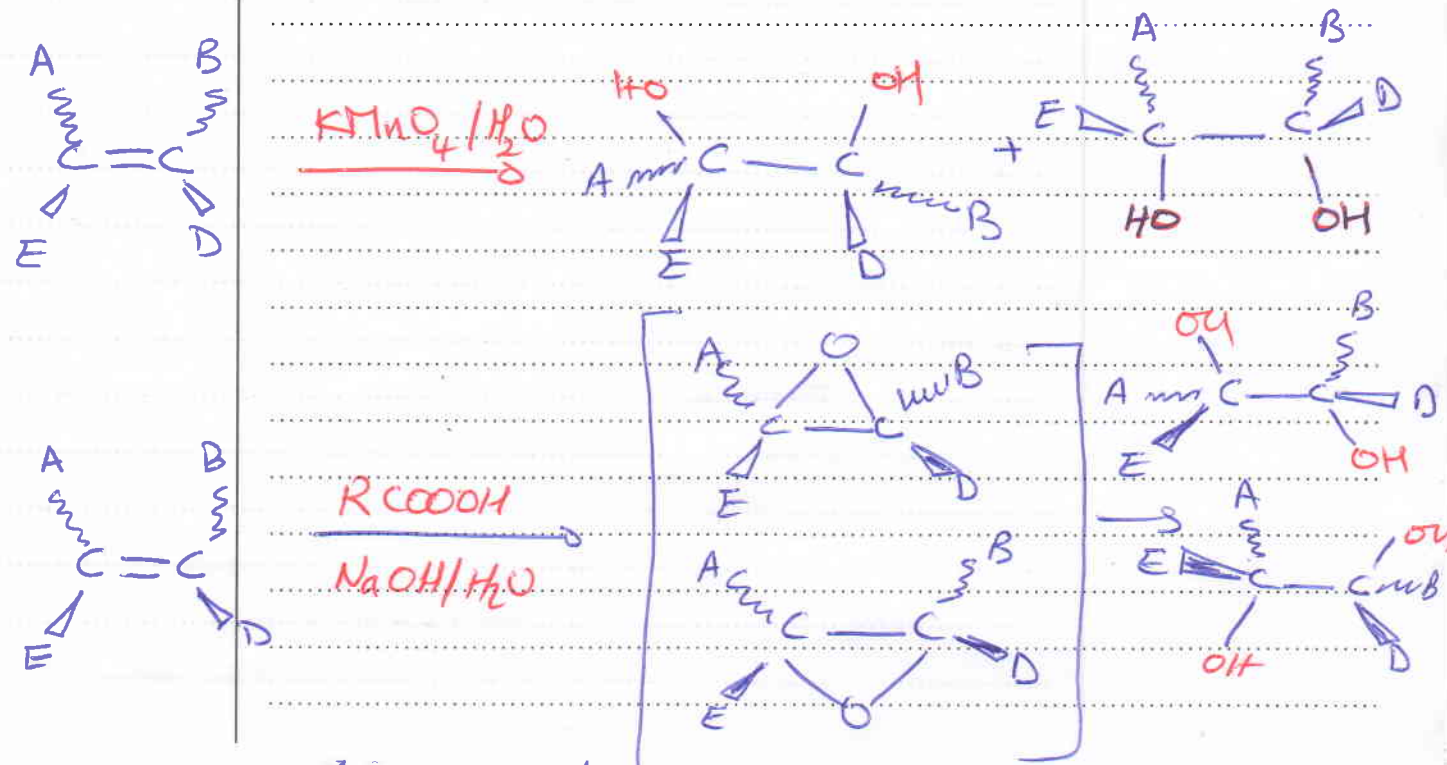 A B
C = C
E D
KMnO4/H2O
HO OH
A C — C B
E D
+
A B
E C — C D
HO OH
A B
C = C
E D
RCOOOH
NaOH/H2O
O
A B
C — C
E D
A B
C — C
E D
O
OH B
A C — C D
E OH
A OH
E C — C B
OH D